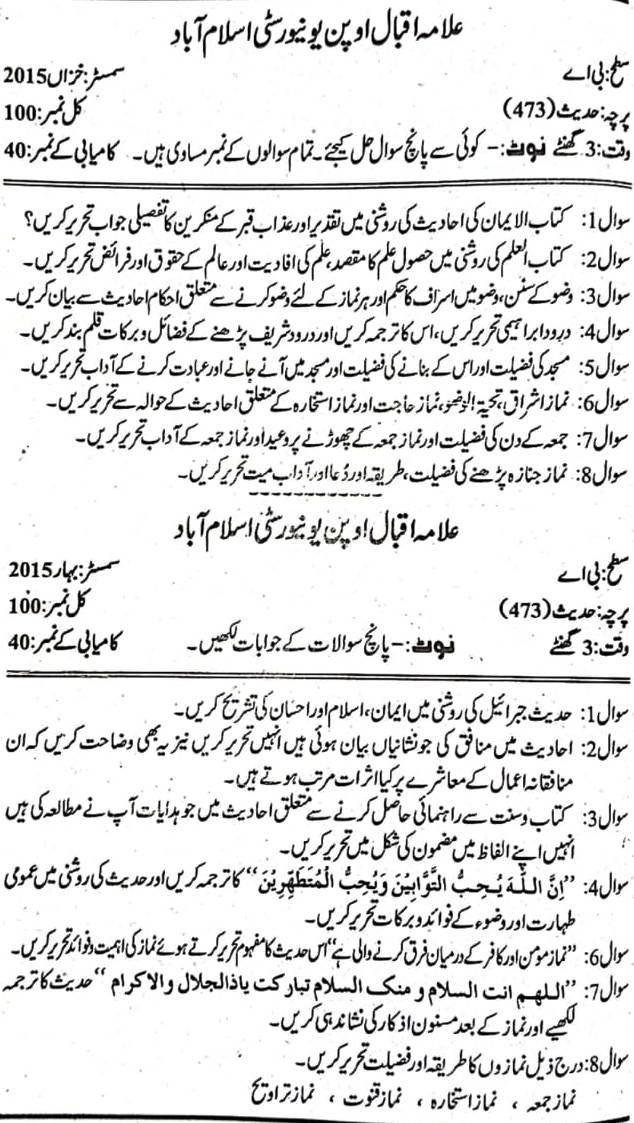 علامہ اقبال اوپن یونیورسٹی اسلام آباد
سطح: بی اے سمسٹر: خزاں 2015
پرچہ: حدیث (473) کل نمبر: 100
وقت: 3 گھنٹے نوٹ:- کوئی سے پانچ سوال حل کیجئے۔ تمام سوالوں کے نمبر مساوی ہیں۔ کامیابی کے نمبر: 40
سوال 1: کتاب الایمان کی احادیث کی روشنی میں تقدیر اور عذاب قبر کے منکرین کا تفصیلی جواب تحریر کریں؟
سوال 2: کتاب العلم کی روشنی میں حصول علم کا مقصد، علم کی افادیت اور عالم کے حقوق اور فرائض تحریر کریں۔
سوال 3: وضو کے سنن، وضو میں اسراف کا حکم اور ہر نماز کے لئے وضو کرنے سے متعلق احکام احادیث سے بیان کریں۔
سوال 4: درود ابراہیمی تحریر کریں، اس کا ترجمہ کریں اور درود شریف پڑھنے کے فضائل و برکات قلم بند کریں۔
سوال 5: مسجد کی فضیلت اور اس کے بنانے کی فضیلت اور مسجد میں آنے جانے اور عبادت کرنے کے آداب تحریر کریں۔
سوال 6: نماز اشراق، تحیۃ الوضو، نماز حاجت اور نماز استخارہ کے متعلق احادیث کے حوالہ سے تحریر کریں۔
سوال 7: جمعہ کے دن کی فضیلت اور نماز جمعہ کے چھوڑنے پر وعید اور نماز جمعہ کے آداب تحریر کریں۔
سوال 8: نماز جنازہ پڑھنے کی فضیلت، طریقہ اور دُعا اور آداب میت تحریر کریں۔
علامہ اقبال اوپن یونیورسٹی اسلام آباد
سطح: بی اے سمسٹر: بہار 2015
پرچہ: حدیث (473) کل نمبر: 100
وقت: 3 گھنٹے نوٹ:- پانچ سوالات کے جوابات لکھیں۔ کامیابی کے نمبر: 40
سوال 1: حدیث جبرائیل کی روشنی میں ایمان، اسلام اور احسان کی تشریح کریں۔
سوال 2: احادیث میں منافق کی جو نشانیاں بیان ہوئی ہیں انہیں تحریر کریں نیز یہ بھی وضاحت کریں کہ ان
منافقانہ اعمال کے معاشرے پر کیا اثرات مرتب ہوتے ہیں۔
سوال 3: کتاب و سنت سے راہنمائی حاصل کرنے سے متعلق احادیث میں جو ہدایات آپ نے مطالعہ کی ہیں
انہیں اپنے الفاظ میں مضمون کی شکل میں تحریر کریں۔
سوال 4: ”اِنَّ اللّٰهَ يُحِبُّ التَّوَّابِيْنَ وَيُحِبُّ الْمُتَطَهِّرِيْنَ“ کا ترجمہ کریں اور حدیث کی روشنی میں عمومی
طہارت اور وضوء کے فوائد و برکات تحریر کریں۔
سوال 6: ”نماز مومن اور کافر کے درمیان فرق کرنے والی ہے“ اس حدیث کا مفہوم تحریر کرتے ہوئے نماز کی اہمیت و فوائد تحریر کریں۔
سوال 7: ”اللهم انت السلام و منك السلام تباركت ياذالجلال والاكرام“ حدیث کا ترجمہ
لکھیے اور نماز کے بعد مسنون اذکار کی نشاندہی کریں۔
سوال 8: درج ذیل نمازوں کا طریقہ اور فضیلت تحریر کریں۔
نماز جمعہ ، نماز استخارہ ، نماز قنوت ، نماز تراویح